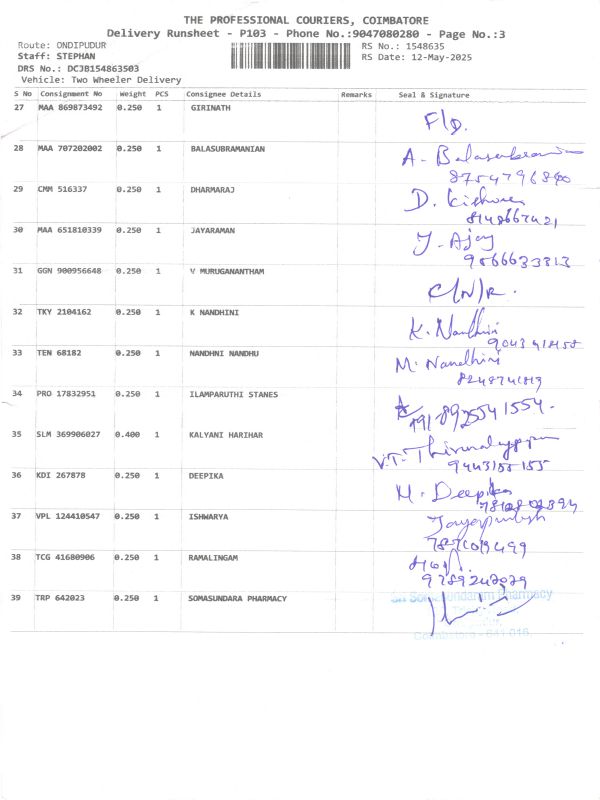 THE PROFESSIONAL COURIERS, COIMBATORE
Delivery Runsheet - P103 - Phone No.:9047080280 - Page No.:3
Route: ONDIPUDUR RS No.: 1548635
Staff: STEPHAN RS Date: 12-May-2025
DRS No.: DCJB154863503
Vehicle: Two Wheeler Delivery
S No Consignment No Weight PCS Consignee Details Remarks Seal & Signature
27 MAA 869873492 0.250 1 GIRINATH
F/D.
28 MAA 707202002 0.250 1 BALASUBRAMANIAN A. Balasubramanian
8754796840
29 CMM 516337 0.250 1 DHARMARAJ D. Kishore
8148667421
30 MAA 651810339 0.250 1 JAYARAMAN J. Ajay
9566633313
31 GGN 900956648 0.250 1 V MURUGANANTHAM
C/N/R.
32 TKY 2104162 0.250 1 K NANDHINI K. Nandhini
33 TEN 68182 0.250 1 NANDHNI NANDHU M. Nandhini
34 PRO 17832951 0.250 1 ILAMPARUTHI STANES
8925541554.
35 SLM 369906027 0.400 1 KALYANI HARIHAR V.T.
36 KDI 267878 0.250 1 DEEPIKA M. Deepika
37 VPL 124410547 0.250 1 ISHWARYA
38 TCG 41680906 0.250 1 RAMALINGAM
39 TRP 642023 0.250 1 SOMASUNDARA PHARMACY Sri Somasundaram Pharmacy
Coimbatore - 641 016